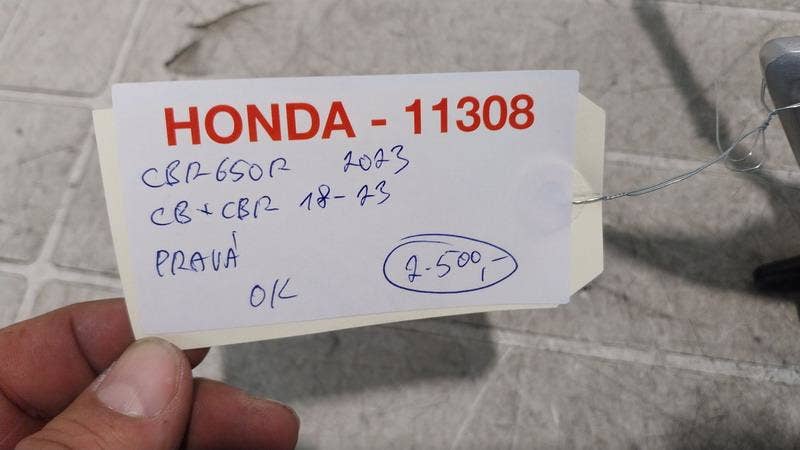 HONDA - 11308
CBR650R 2023
CB + CBR 18-23
PRAVÁ
OK
2.500,-